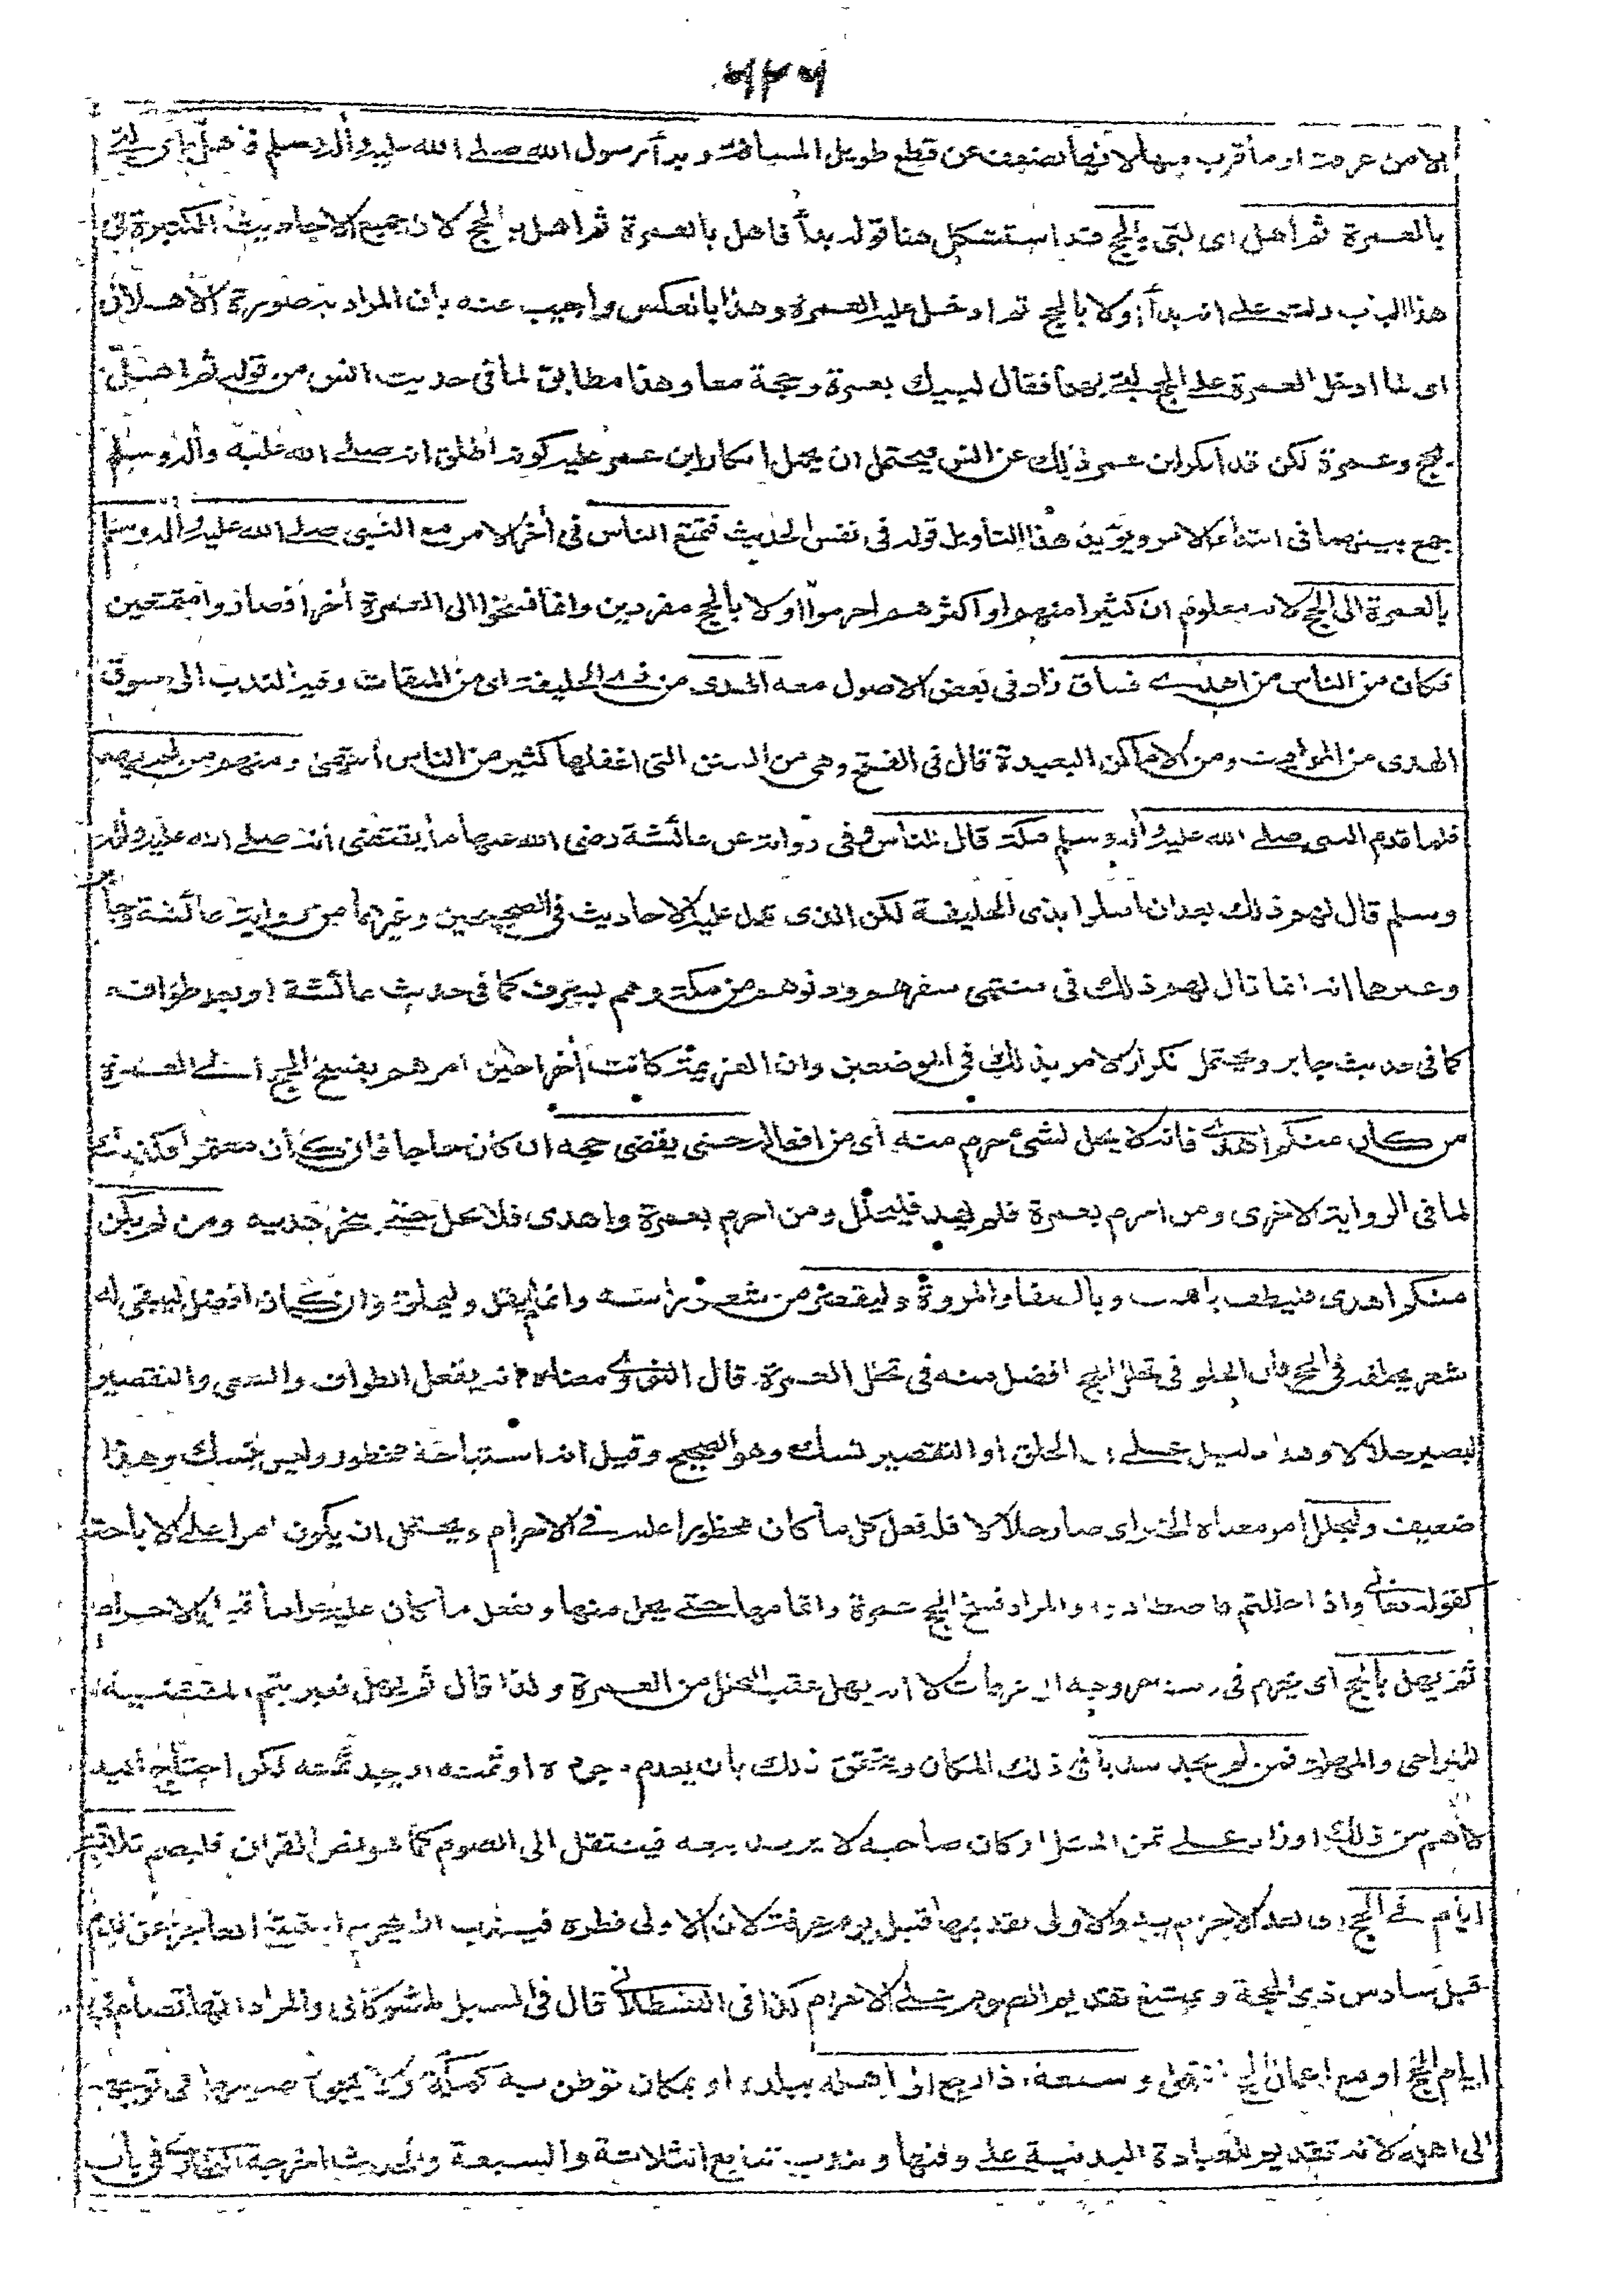 ۵۲۵
الا من عرفة او ما قرب منها لانها تضعف عن قطع طويل المسافة وبدأ رسول الله صلى الله عليه وآله وسلم فأهل اى لبى
بالعمرة ثم اهل اى لبى بالحج قد استشكل هنا قوله بدأ فاهل بالعمرة ثم اهل بالحج لان جميع الاحاديث الكثيرة فى
هذا الباب دلت على انه بدأ اولا بالحج ثم ادخل عليه العمرة وهذا بالعكس واجيب عنه بان المراد به صورة الاهلال
اى لما ادخل العمرة على الحج لبى بهما فقال لبيك بعمرة وحجة معا وهذا مطابق لما فى حديث انس من قوله ثم اهل
بحج وعمرة لكن قد انكر ابن عمر ذلك عن انس فيحتمل ان يحمل انكار ابن عمر عليه كونه اطلق انه صلى الله عليه وآله وسلم
جمع بينهما فى ابتداء الامر ويؤيد هذا التأويل قوله فى نفس الحديث فتمتع الناس فى آخر الامر مع النبى صلى الله عليه وآله وسلم
بالعمرة الى الحج لانه معلوم ان كثيرا منهم او اكثرهم احرموا اولا بالحج مفردين وانما فسخوا الى العمرة آخرا فصاروا متمتعين
فكان من الناس من اهدى فساق زاد فى بعض الاصول معه الهدى من ذى الحليفة اى من الميقات وفيه الندب الى سوق
الهدى من المواقيت ومن الاماكن البعيدة قال فى الفتح وهى من السنن التى اغفلها كثير من الناس انتهى ومنهم من لم يهد
فلما قدم النبى صلى الله عليه وآله وسلم مكة قال للناس وفى رواية عن عائشة رضى الله عنها ما يقتضى انه صلى الله عليه وآله
وسلم قال لهم ذلك بعد ان اهلوا بذى الحليفة لكن الذى تدل عليه الاحاديث فى الصحيحين وغيرهما من رواية عائشة وجابر
وغيرهما انه انما قال لهم ذلك فى منتهى سفرهم ودنوهم من مكة وهم بسرف كما فى حديث عائشة او بعد طوافه
كما فى حديث جابر ويحتمل تكرار الامر بذلك فى الموضعين وان العزيمة كانت آخرا حين امرهم بفسخ الحج الى العمرة
من كان منكم اهدى فانه لا يحل لشىء حرم منه اى من افعاله حتى يقضى حجه ان كان حاجا فان كان معتمرا فكذلك
لما فى الرواية الاخرى ومن احرم بعمرة فلم يهد فليحلل ومن احرم بعمرة واهدى فلا يحل حتى ينحر هديه ومن لم يكن
منكم اهدى فليطف بالبيت وبالصفا والمروة وليقصر من شعر رأسه وانما لم يقل وليحلق وان كان افضل ليبقى له
شعر يحلقه فى الحج فان الحلق فى تحلل الحج افضل منه فى تحلل العمرة قال النووى معناه انه يفعل الطواف والسعى والتقصير
ليصير حلالا وهذا دليل على ان الحلق او التقصير نسك وهو الصحيح وقيل انه استباحة محظور وليس بنسك وهذا
ضعيف وليحلل امر معناه الخبر اى صار حلالا فله فعل كل ما كان محظورا عليه فى الاحرام ويحتمل ان يكون امرا على الاباحة
كقوله تعالى واذا حللتم فاصطادوا والمراد فسخ الحج عمرة واتمامها حتى يحل منها وفعل ما كان عليه حراما قبل الاحرام
ثم يهل بالحج اى يحرم فى وقت خروجه الى عرفات لا انه يهل عقب التحلل من العمرة ولذا قال ثم يهل فعبر بثم المقتضية
للتراخى والمهلة فمن لم يجد هديا فى ذلك المكان ويتحقق ذلك بان يعدم وجوده او ثمنه او يجد ثمنه لكن احتاج اليه
لأهم من ذلك او زاد على ثمن المثل او كان صاحبه لا يريد بيعه فينتقل الى الصوم كما هو نص القرآن فليصم ثلاثة
ايام فى الحج اى بعد الاحرام به والاولى تقديمها قبل يوم عرفة لان الاولى فطره فيندب ان يحرم العاجز عن الدم
قبل سادس ذى الحجة ويمتنع تقديم الصوم على الاحرام كذا فى القسطلانى قال فى السيل للشوكانى والمراد انها تصام فى
ايام الحج او مع اعمال الحج انتهى وسبعة اذا رجع الى اهله ببلده او بمكان توطن به كمكة ولا يجوز صومها فى توجهه
الى اهله لانه تقديم للعبادة البدنية على وقتها ويندب تتابع الثلاثة والسبعة والحديث اخرجه البخارى فى باب